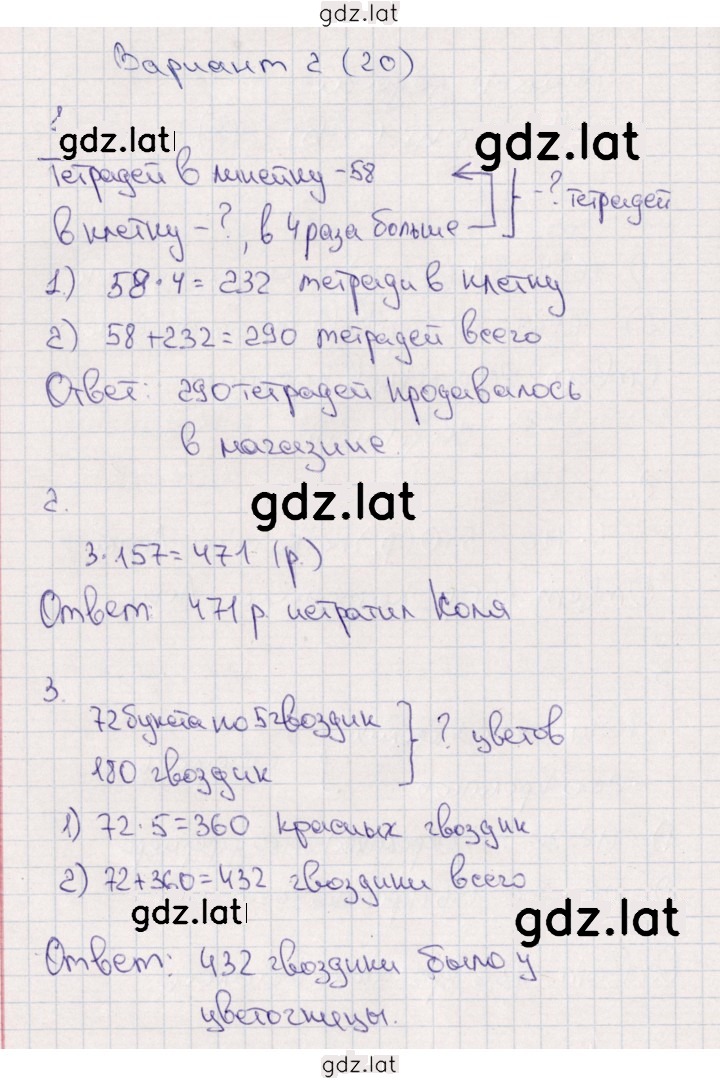 gdz.lat
Вариант 2 (20)
1.
gdz.lat gdz.lat
Тетрадей в линейку - 58
- ? тетрадей
в клетку - ?, в 4 раза больше
1) 58·4 = 232 тетради в клетку
2) 58+232 = 290 тетрадей всего
Ответ: 290 тетрадей продавалось
в магазине.
2. gdz.lat
3·157 = 471 (р.)
Ответ: 471 р. истратил Коля
3.
72 букета по 5 гвоздик
? цветов
180 гвоздик
1) 72·5 = 360 красных гвоздик
2) 72+360 = 432 гвоздики всего
gdz.lat gdz.lat
Ответ: 432 гвоздики было у
цветочницы.
gdz.lat